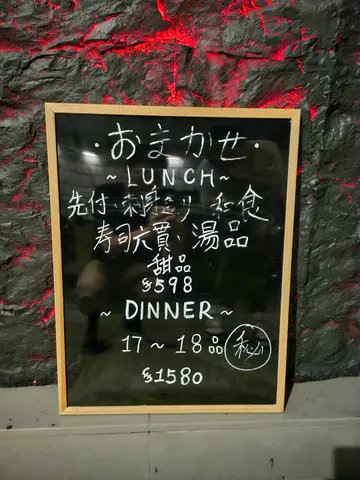 ・おまかせ・
~ LUNCH ~
先付、刺身盛り 和食
寿司六貫、湯品
甜品
$598
~ DINNER ~
17 ~ 18品
$1580